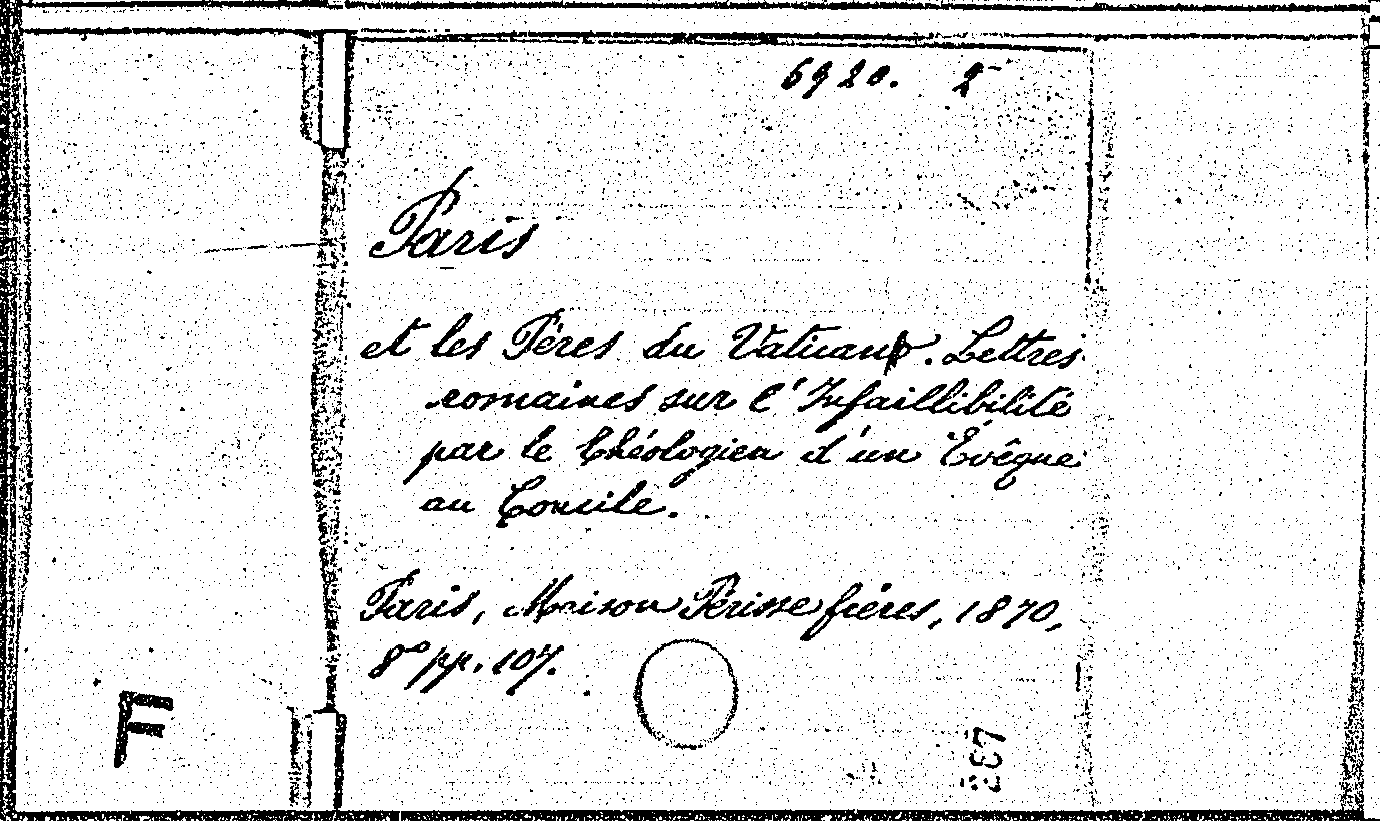 6920. 2
Paris
et les Pères du Vatican. Lettres
romaines sur l'Infaillibilité
par le théologien d'un Évêque
au Concile.
Paris, Maison Périsse frères, 1870,
8° pp. 107.
F